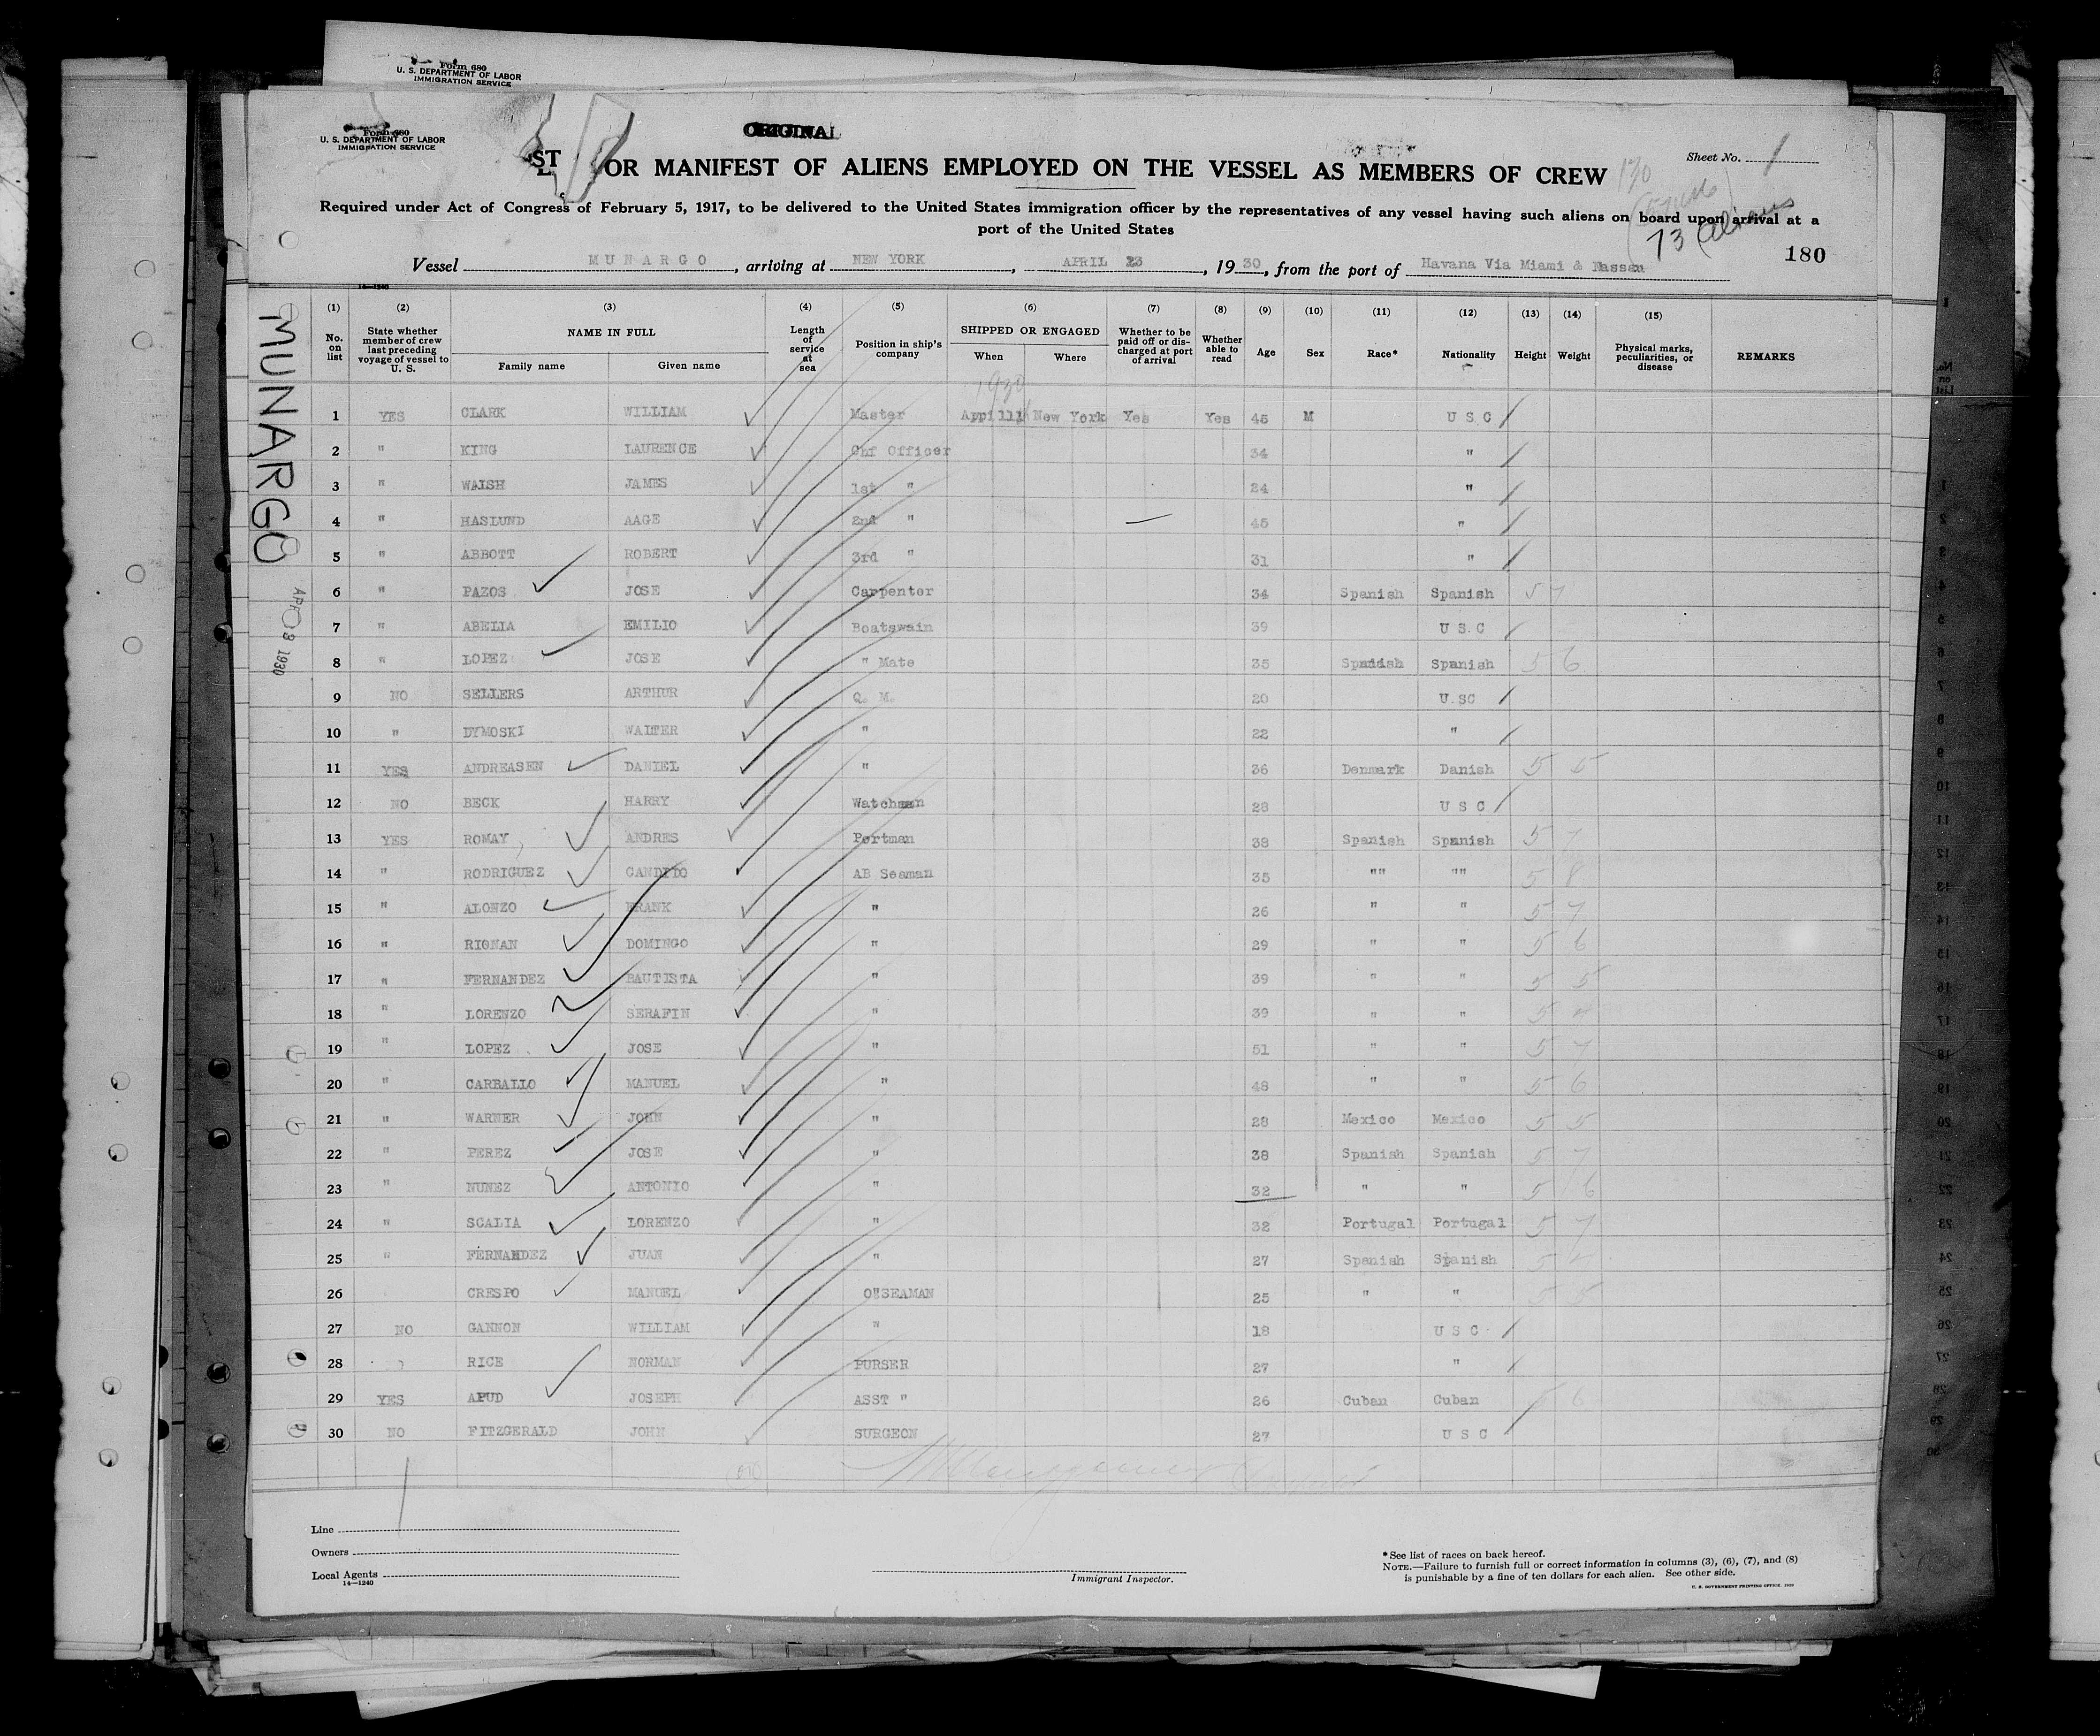 Form 680
U. S. DEPARTMENT OF LABOR
IMMIGRATION SERVICE
Form 680
U. S. DEPARTMENT OF LABOR
IMMIGRATION SERVICE
ORIGINAL
Sheet No. 1
ST OR MANIFEST OF ALIENS EMPLOYED ON THE VESSEL AS MEMBERS OF CREW
Required under Act of Congress of February 5, 1917, to be delivered to the United States immigration officer by the representatives of any vessel having such aliens on board upon arrival at a
port of the United States
73 Aliens
180
Vessel MUNARGO, arriving at NEW YORK, APRIL 23, 1930, from the port of Havana Via Miami & Nassau
14—1240
MUNARGO
(1) (2) (3) (4) (5) (6) (7) (8) (9) (10) (11) (12) (13) (14) (15)
No. on list State whether member of crew last preceding voyage of vessel to U. S. NAME IN FULL Family name Given name Length of service at sea Position in ship's company SHIPPED OR ENGAGED When Where Whether to be paid off or discharged at port of arrival Whether able to read Age Sex Race* Nationality Height Weight Physical marks, peculiarities, or disease REMARKS
1930
1 YES CLARK WILLIAM Master Appilll New York Yes Yes 45 M U S C
2 " KING LAURENCE Chf Officer 34 "
3 " WALSH JAMES 1st " 24 "
4 " HASLUND AAGE 2nd " 45 "
5 " ABBOTT ROBERT 3rd " 31 "
6 " PAZOS JOSE Carpenter 34 Spanish Spanish 5 7
7 " ABELLA EMILIO Boatswain 39 U S C
8 " LOPEZ JOSE " Mate 35 Spanish Spanish 5 6
9 NO SELLERS ARTHUR Q. M. 20 U SC
10 " DYMOSKI WALTER " 22 "
11 YES ANDREASEN DANIEL " 36 Denmark Danish 5 5
12 NO BECK HARRY Watchman 28 U S C
13 YES ROMAY ANDRES Portman 38 Spanish Spanish 5 7
14 " RODRIGUEZ CANDIDO AB Seaman 35 "" "" 5 8
15 " ALONZO FRANK " 26 " " 5 7
16 " RIOMAN DOMINGO " 29 " " 5 6
17 " FERNANDEZ BAUTISTA " 39 " " 5 5
18 " LORENZO SERAFIN " 39 " " 5
19 " LOPEZ JOSE " 51 " " 5 7
20 " CARBALLO MANUEL " 48 " " 5 6
21 " WARNER JOHN " 28 Mexico Mexico 5 5
22 " PEREZ JOSE " 38 Spanish Spanish 5 7
23 " NUNEZ ANTONIO " 32 " " 5 6
24 " SCALIA LORENZO " 32 Portugal Portugal 5 7
25 " FERNANDEZ JUAN " 27 Spanish Spanish 5
26 CRESPO MANUEL O"SEAMAN 25 " " 5 5
27 NO GANNON WILLIAM " 18 U S C
28 RICE NORMAN PURSER 27 "
29 YES APUD JOSEPH ASST " 26 Cuban Cuban 5 6
30 NO FITZGERALD JOHN SURGEON 27 U S C
Line
Owners
Local Agents
14—1240
Immigrant Inspector.
* See list of races on back hereof.
NOTE.—Failure to furnish full or correct information in columns (3), (6), (7), and (8)
is punishable by a fine of ten dollars for each alien. See other side.
U. S. GOVERNMENT PRINTING OFFICE